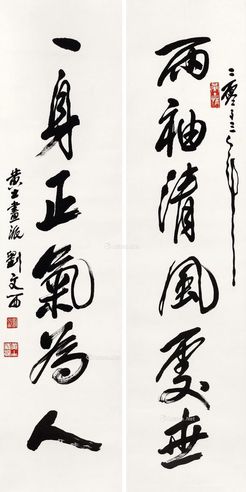 二零一三年
兩袖清風處世
一身正氣為人
黃土畫派 劉文西